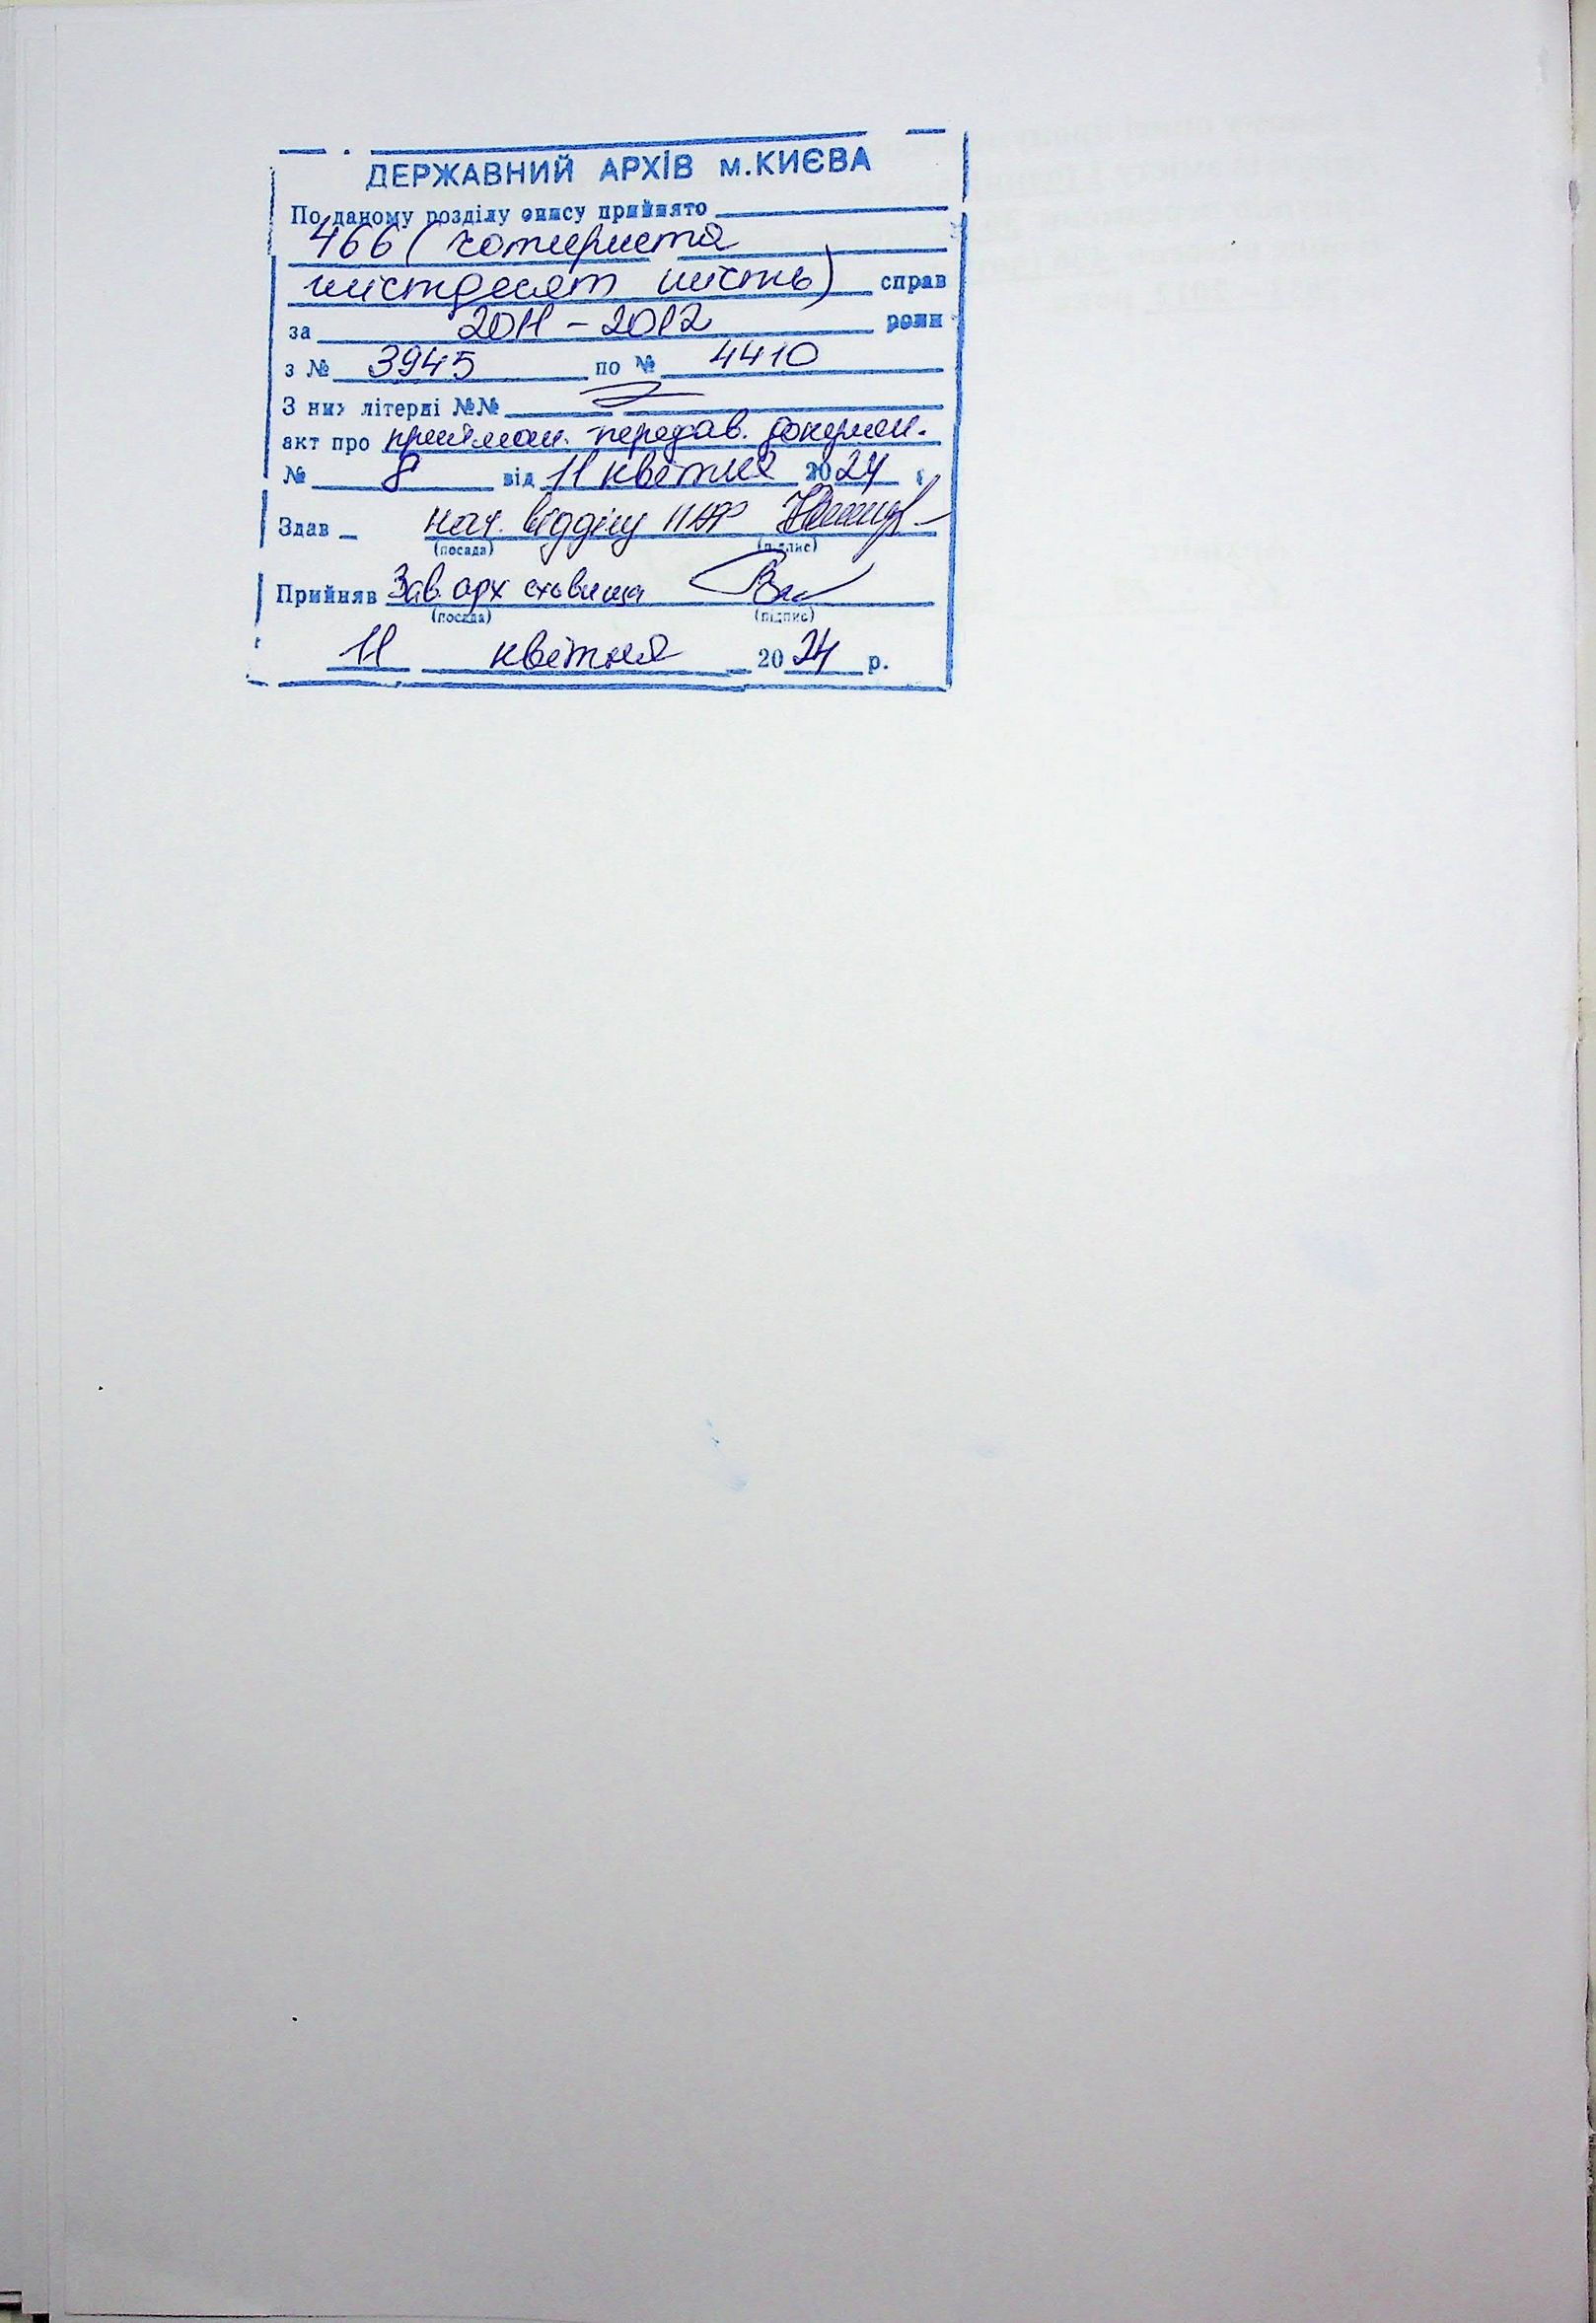 ДЕРЖАВНИЙ АРХІВ м.КИЄВА
По даному розділу опису прийнято
466 (чотириста
шістдесят шість) справ
за 2011 – 2012 роки
з № 3945 по № 4410
З них літерні №№
акт про прийман. передав. докумен.
№ 8 від 11 квітня 2024 р
Здав нач. відділу НАФ
(посада) (підпис)
Прийняв Зав. арх сховища
(посада) (підпис)
11 квітня 2024 р.